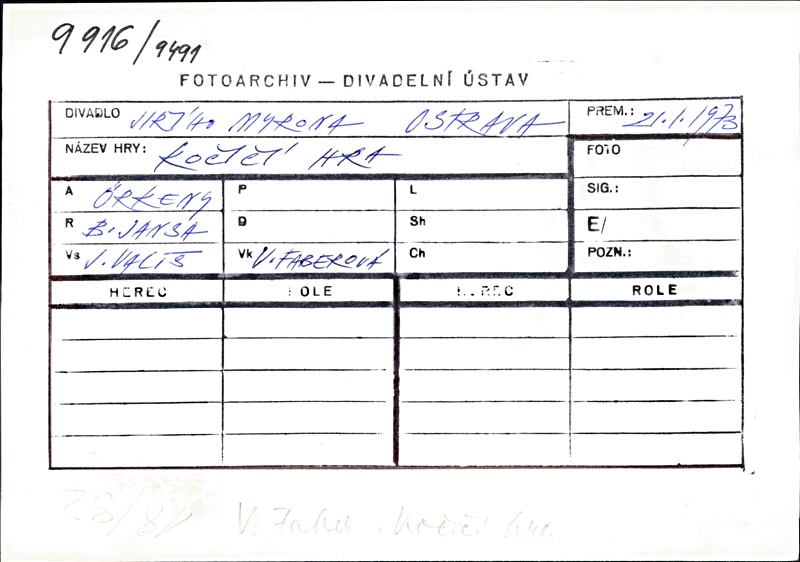 9916/9491
FOTOARCHIV — DIVADELNÍ ÚSTAV
DIVADLO JIŘÍHO MYRONA OSTRAVA PREM.: 21.1.1973
NÁZEV HRY: KOČIČÍ HRA FOTO
A ÖRKENY P L SIG.:
R B. JANSA D Sh E/
Vs J. VALIŠ Vk V. FABEROVÁ Ch POZN.:
HEREC ROLE HEREC ROLE
V. Kočičí hra